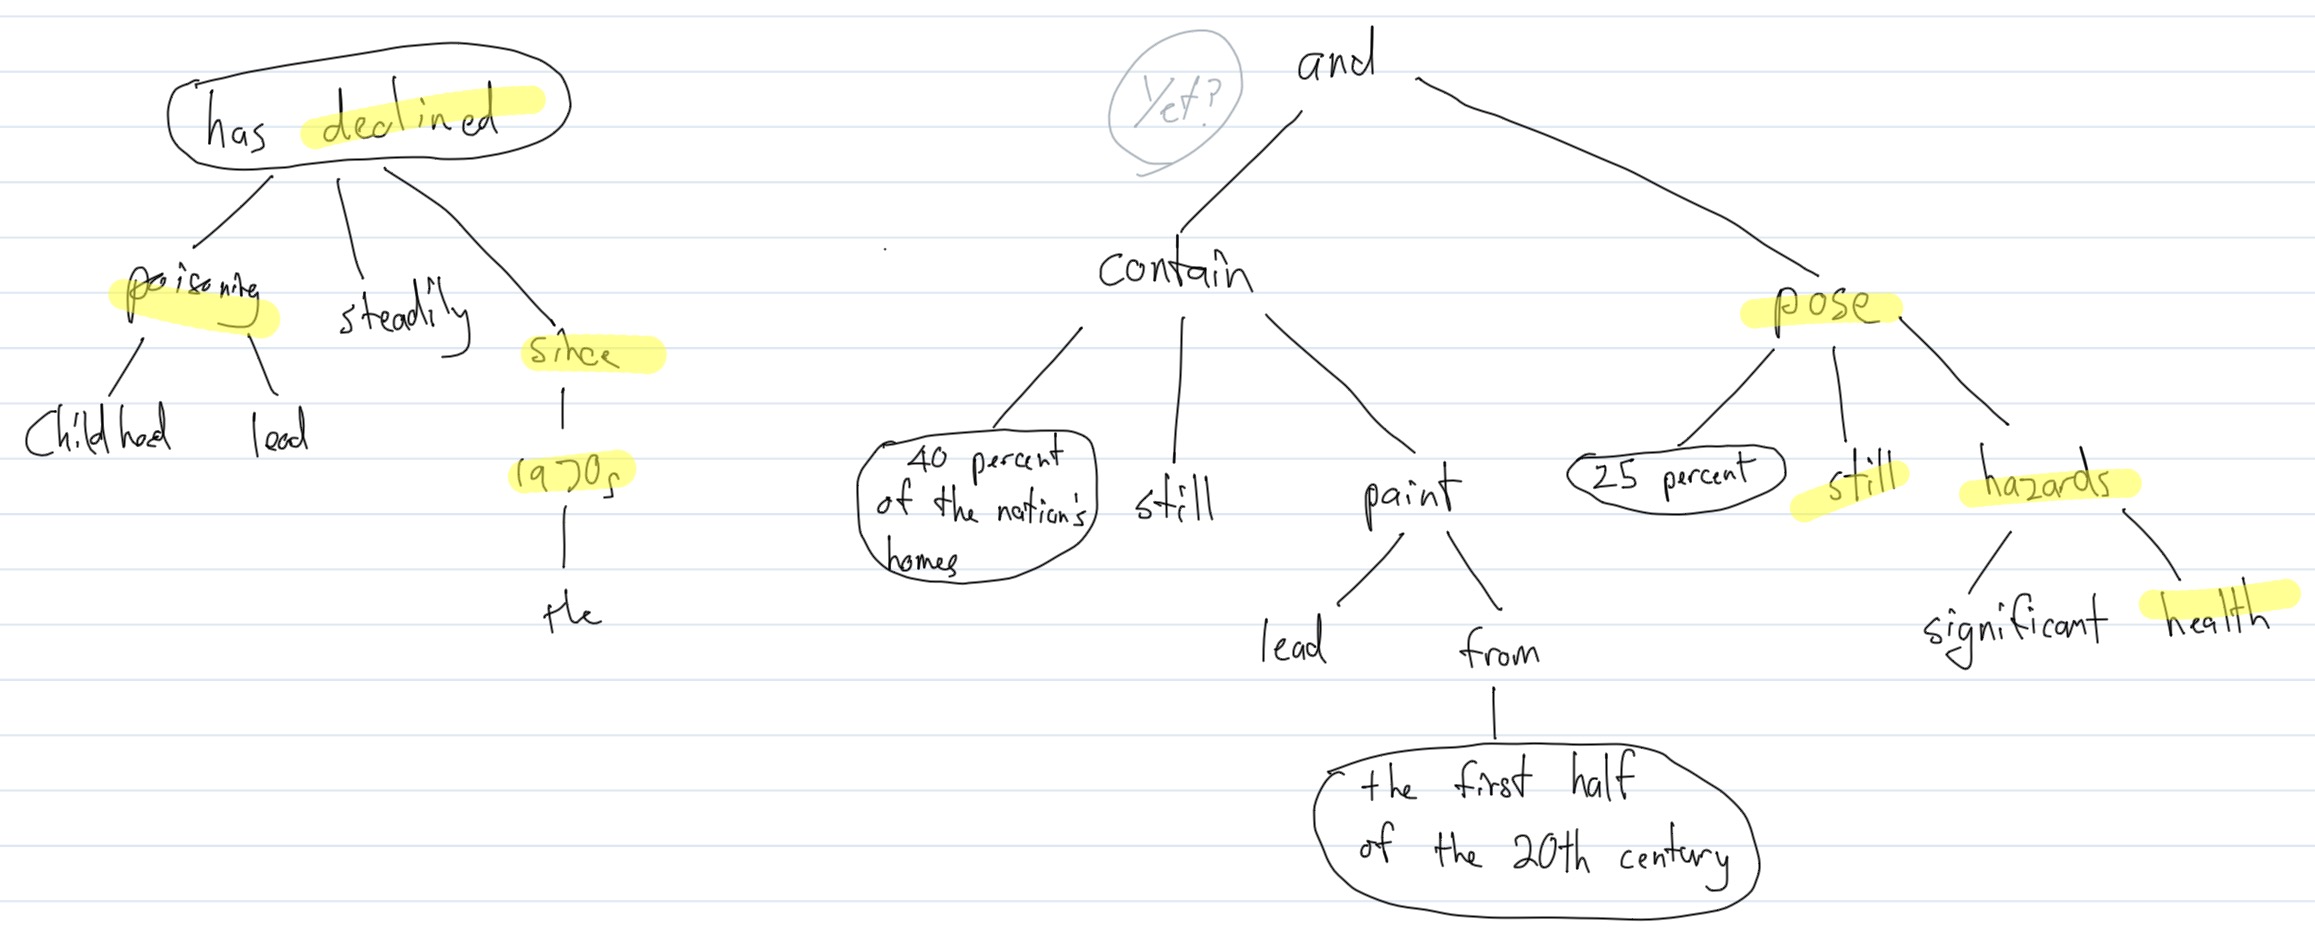 and
Yet?
has declined
contain
poisoning
steadily
pose
since
Childhood
lead
1970s
40 percent
of the nation's
homes
still
paint
25 percent
still
hazards
the
lead
from
significant
health
the first half
of the 20th century